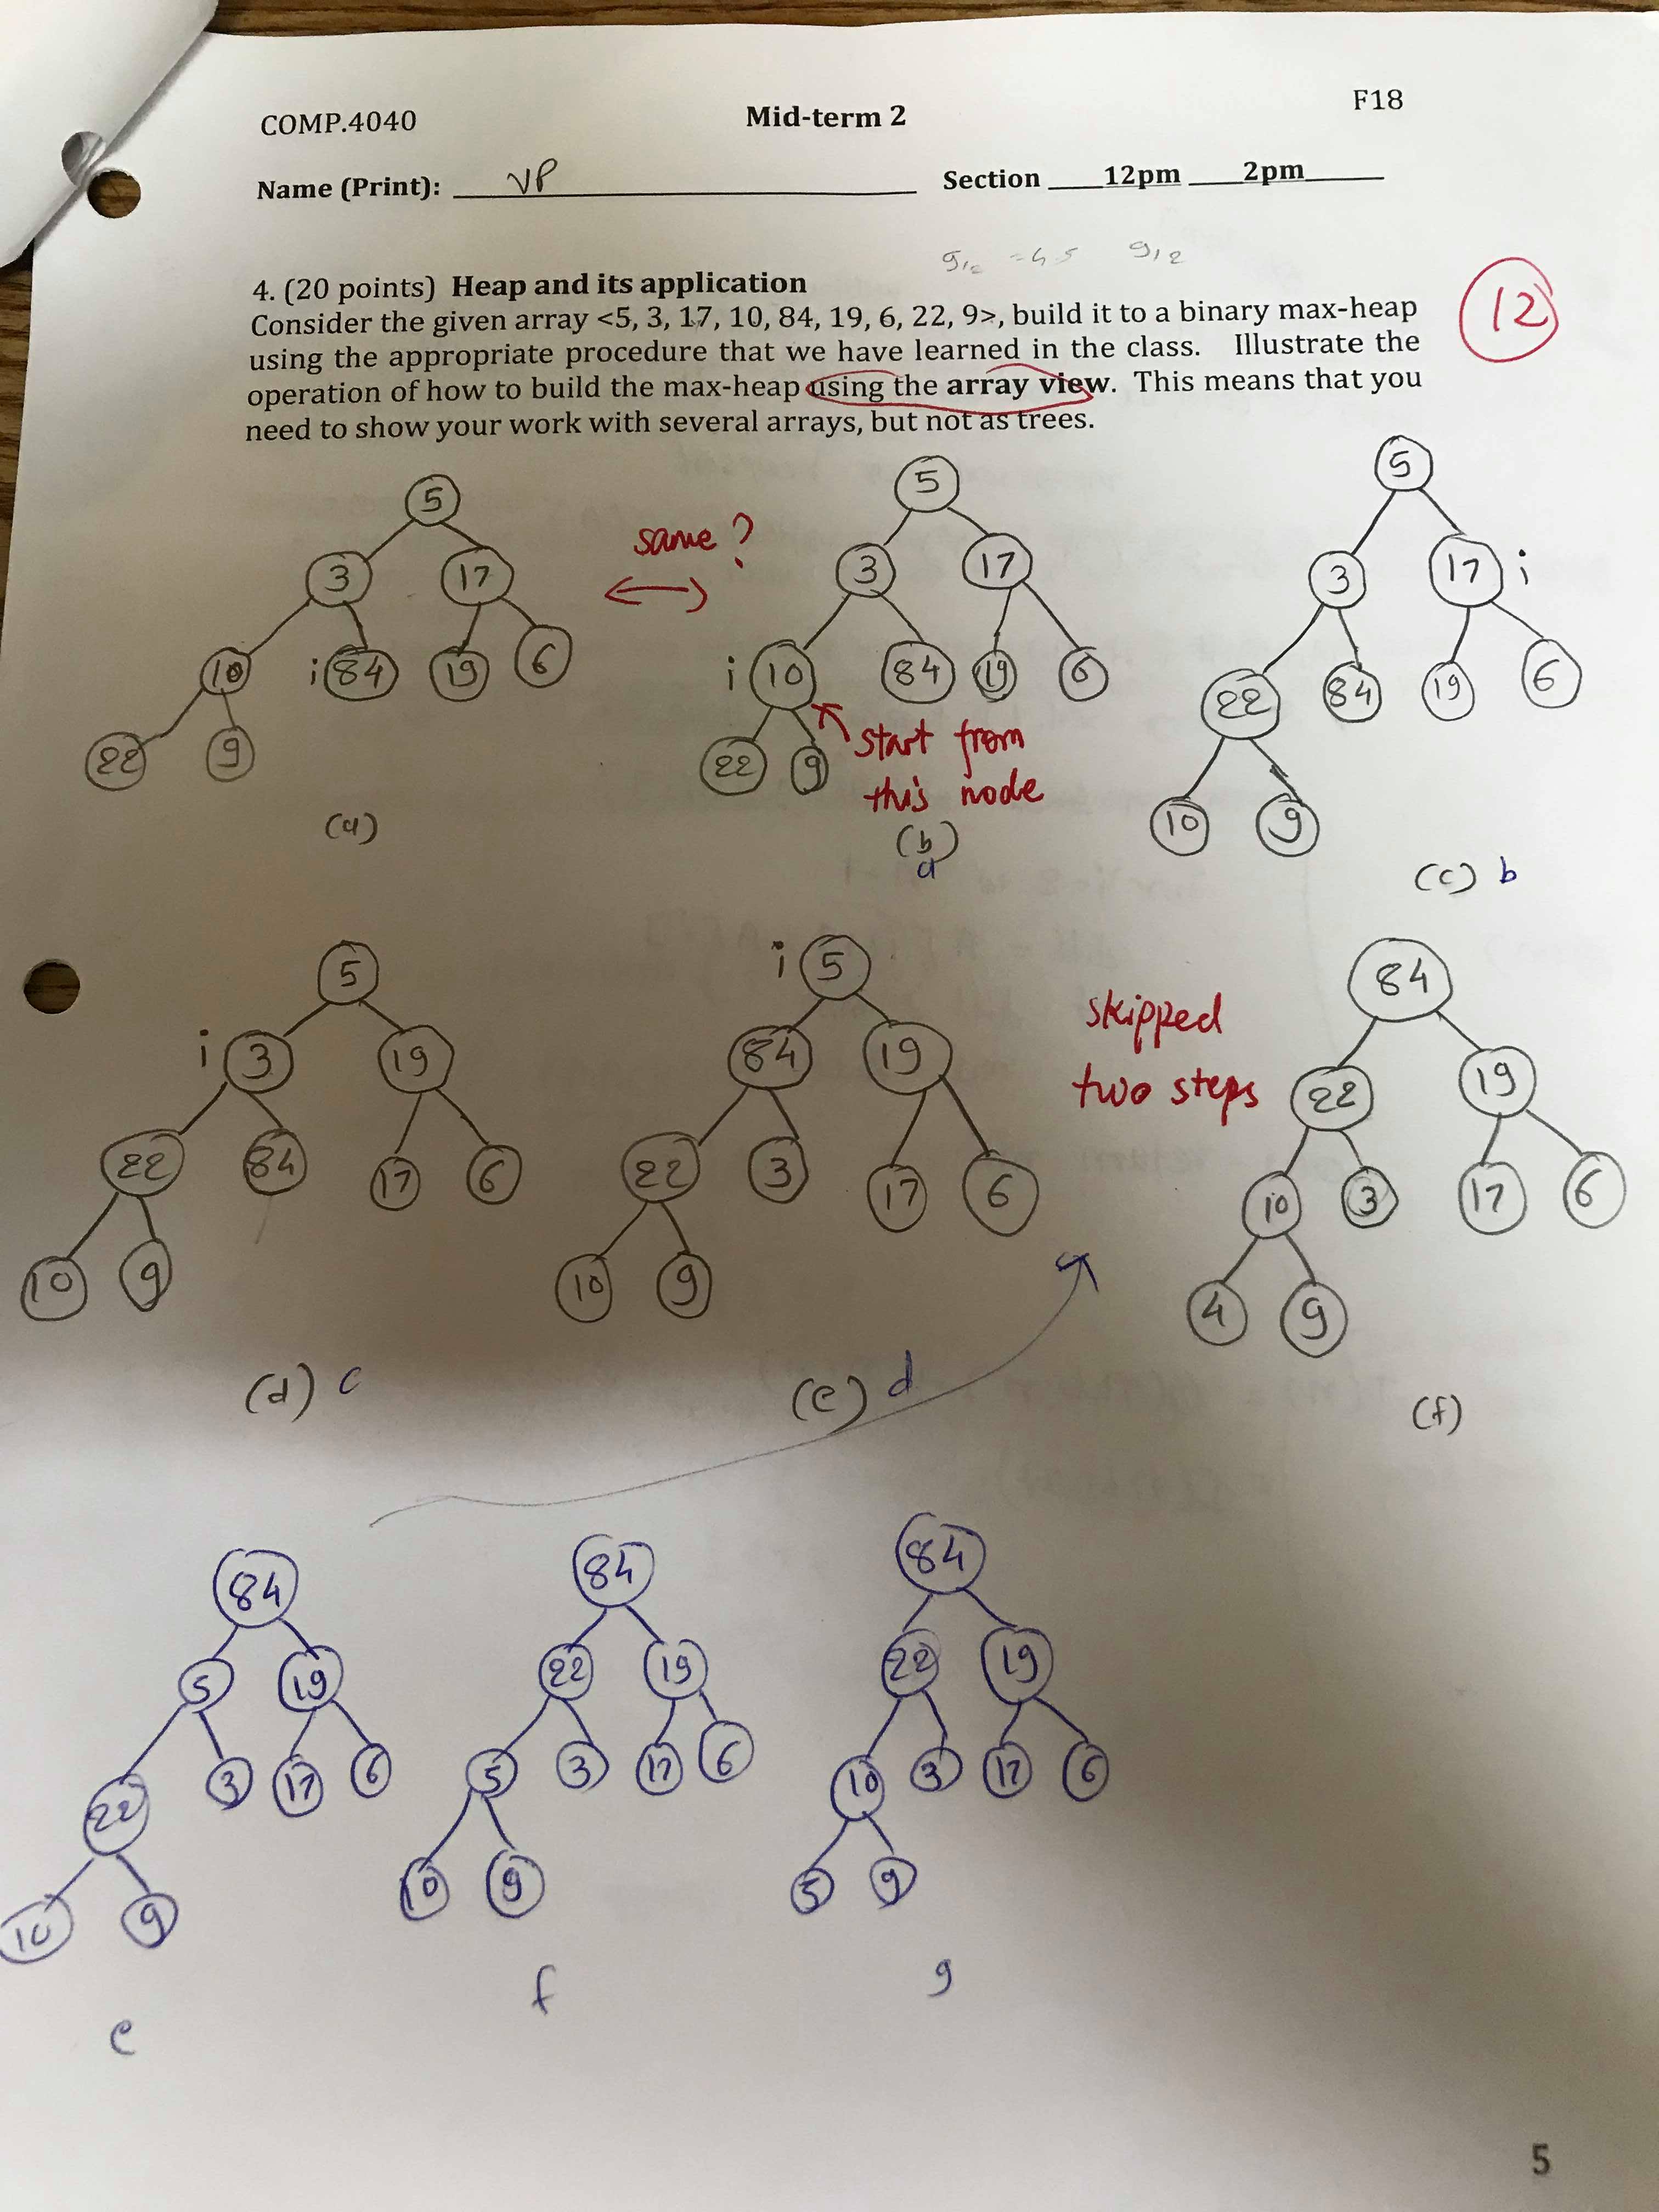 COMP.4040 Mid-term 2 F18
Name (Print): VP Section ____12pm ____2pm____
9/2 = 4.5 9/2
4. (20 points) Heap and its application
12
Consider the given array <5, 3, 17, 10, 84, 19, 6, 22, 9>, build it to a binary max-heap
using the appropriate procedure that we have learned in the class. Illustrate the
operation of how to build the max-heap using the array view. This means that you
need to show your work with several arrays, but not as trees.
5
3 17
10 i 84 19 6
22 9
(a)
same?
5
3 17
i 10 84 19 6
22 9
start from
this node
(b)
a
5
3 17 i
22 84 19 6
10 9
(c) b
5
i 3 19
22 84 17 6
10 9
(d) c
i 5
84 19
22 3 17 6
10 9
(e) d
skipped
two steps
84
22 19
10 3 17 6
4 9
(f)
84
5 19
22 3 17 6
10 9
e
84
22 19
5 3 17 6
10 9
f
84
22 19
10 3 17 6
5 9
g
5